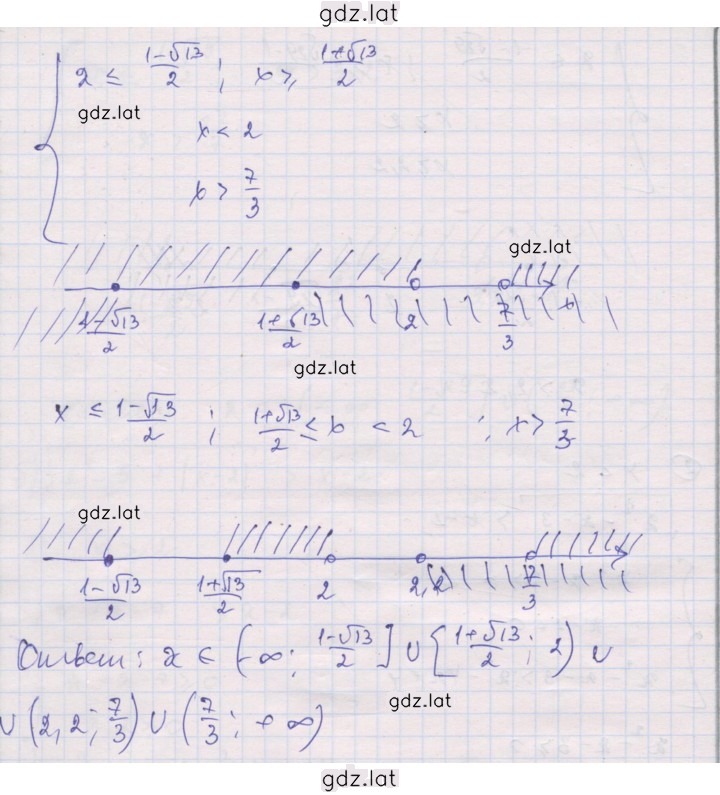 gdz.lat
2 ≤ (1-√13)/2 ; x ≥ (1+√13)/2
gdz.lat
x < 2
x > 7/3
gdz.lat
(1-√13)/2 (1+√13)/2 2 7/3 x
gdz.lat
x ≤ (1-√13)/2 ; (1+√13)/2 ≤ x < 2 ; x > 7/3
gdz.lat
(1-√13)/2 (1+√13)/2 2 2,2 7/3 x
Ответ: x ∈ (-∞; (1-√13)/2] ∪ [(1+√13)/2; 2) ∪
gdz.lat
∪ (2,2; 7/3) ∪ (7/3; +∞)
gdz.lat